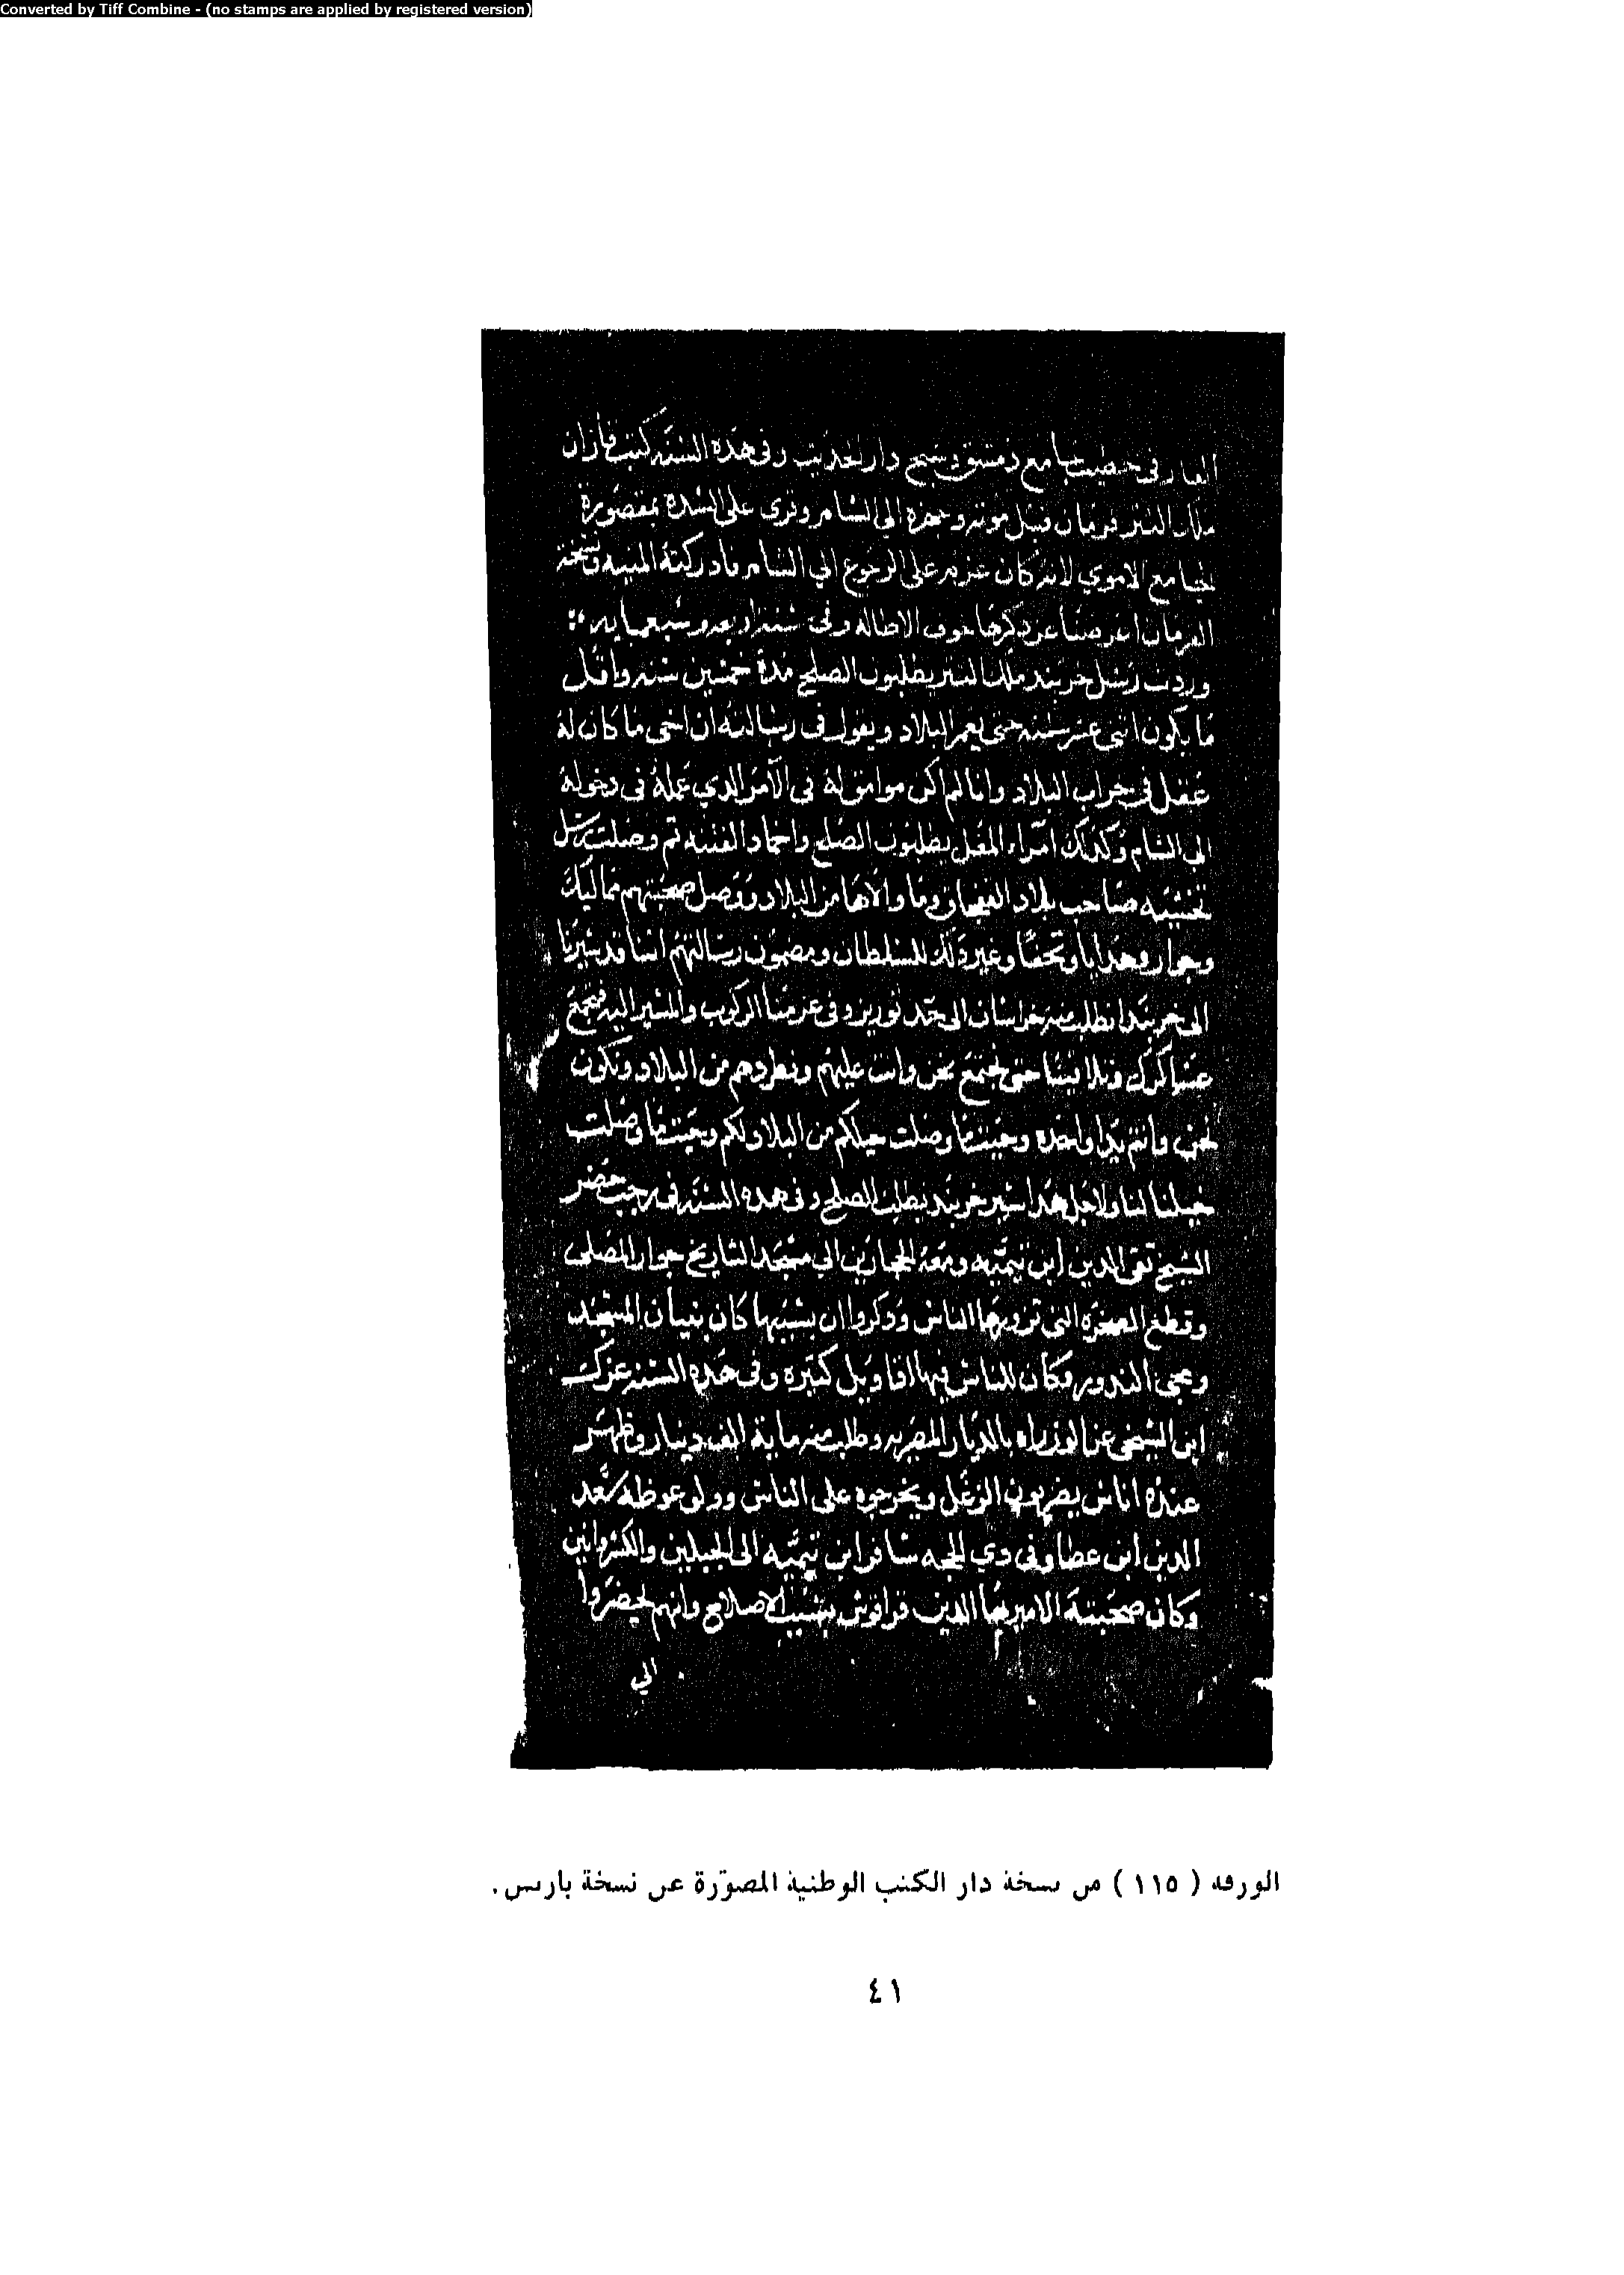 Converted by Tiff Combine - (no stamps are applied by registered version)
الفارقى خطيب جامع دمشق وشيخ دار الحديث وفى هذه السنة كتب قازان
ملك التتر فرمان قبل موته وجهزه الى الشام وقرى على السدة بمقصورة
الجامع الاموي لانه كان عزمه على الرجوع الي الشام فادركته المنيه ونسخة
الفرمان اعرضنا عن ذكرها خوف الاطاله وفى سنة اربعه وسبعمايه
وردت رسل خربندا ملك التتر يطلبون الصلح مدة خمسين سنه واقل
ما يكون اثنى عشر سنه حتى يعمر البلاد ويقول فى رسالته ان اخى ما كان له
عقل فى خراب البلاد وانا لم اكن موافق له فى الأمر الذي عمله فى دخوله
الى الشام وكذلك امرآء المغل يطلبون الصلح واخماد الفتنه ثم وصلت رسل
صاحب بلاد وما والاها من البلاد ووصل صحبتهم مماليك
وجوار وهدايا وتحفا وغير ذلك للسلطان ومضمون رسالتهم اننا قد سيرنا
الى خربندا نطلب منه خراسان الى حد توريز وفى عزمنا الركوب والمسير اليه فتجمع
عساكرك وتلاقينا حتى نجتمع نحن وانت عليهم ونطردهم من البلاد ونكون
نحن وانتم يدا واحده وحيثما وصلت خيلكم من البلاد لكم وحيثما وصلت
خيلنا لنا ولاجل هذا سير خربندا يطلب الصلح وفى هذه السنة فى رجب حضر
الشيخ تقى الدين ابن تيميه ومعه الحجارين الى مسجد التاريخ جوار المصلى
وقطع الصخره التى تزورها الناس وذكروا ان بسببها كان بنيان المسجد
ومجى النذور وكان للناس فيها اقاويل كثيره وفى هذه السنة عزلت
ابن الشيخى عن الوزاره بالديار المصريه وطلب منه ماية الف دينار وظهر
عنده اناس يضربون الزغل ويخرجوه على الناس وولو عوضه سعد
الدين ابن عطا وفى ذي الحجه سافر ابن تيميه الى الجبليين والكسروانيين
وكان صحبته الامير بها الدين قراقوش بسبب الاصلاح وانهم يحضروا
الي
الورقة ( ١١٥ ) من نسخة دار الكتب الوطنية المصوّرة عن نسخة باريس .
٤١